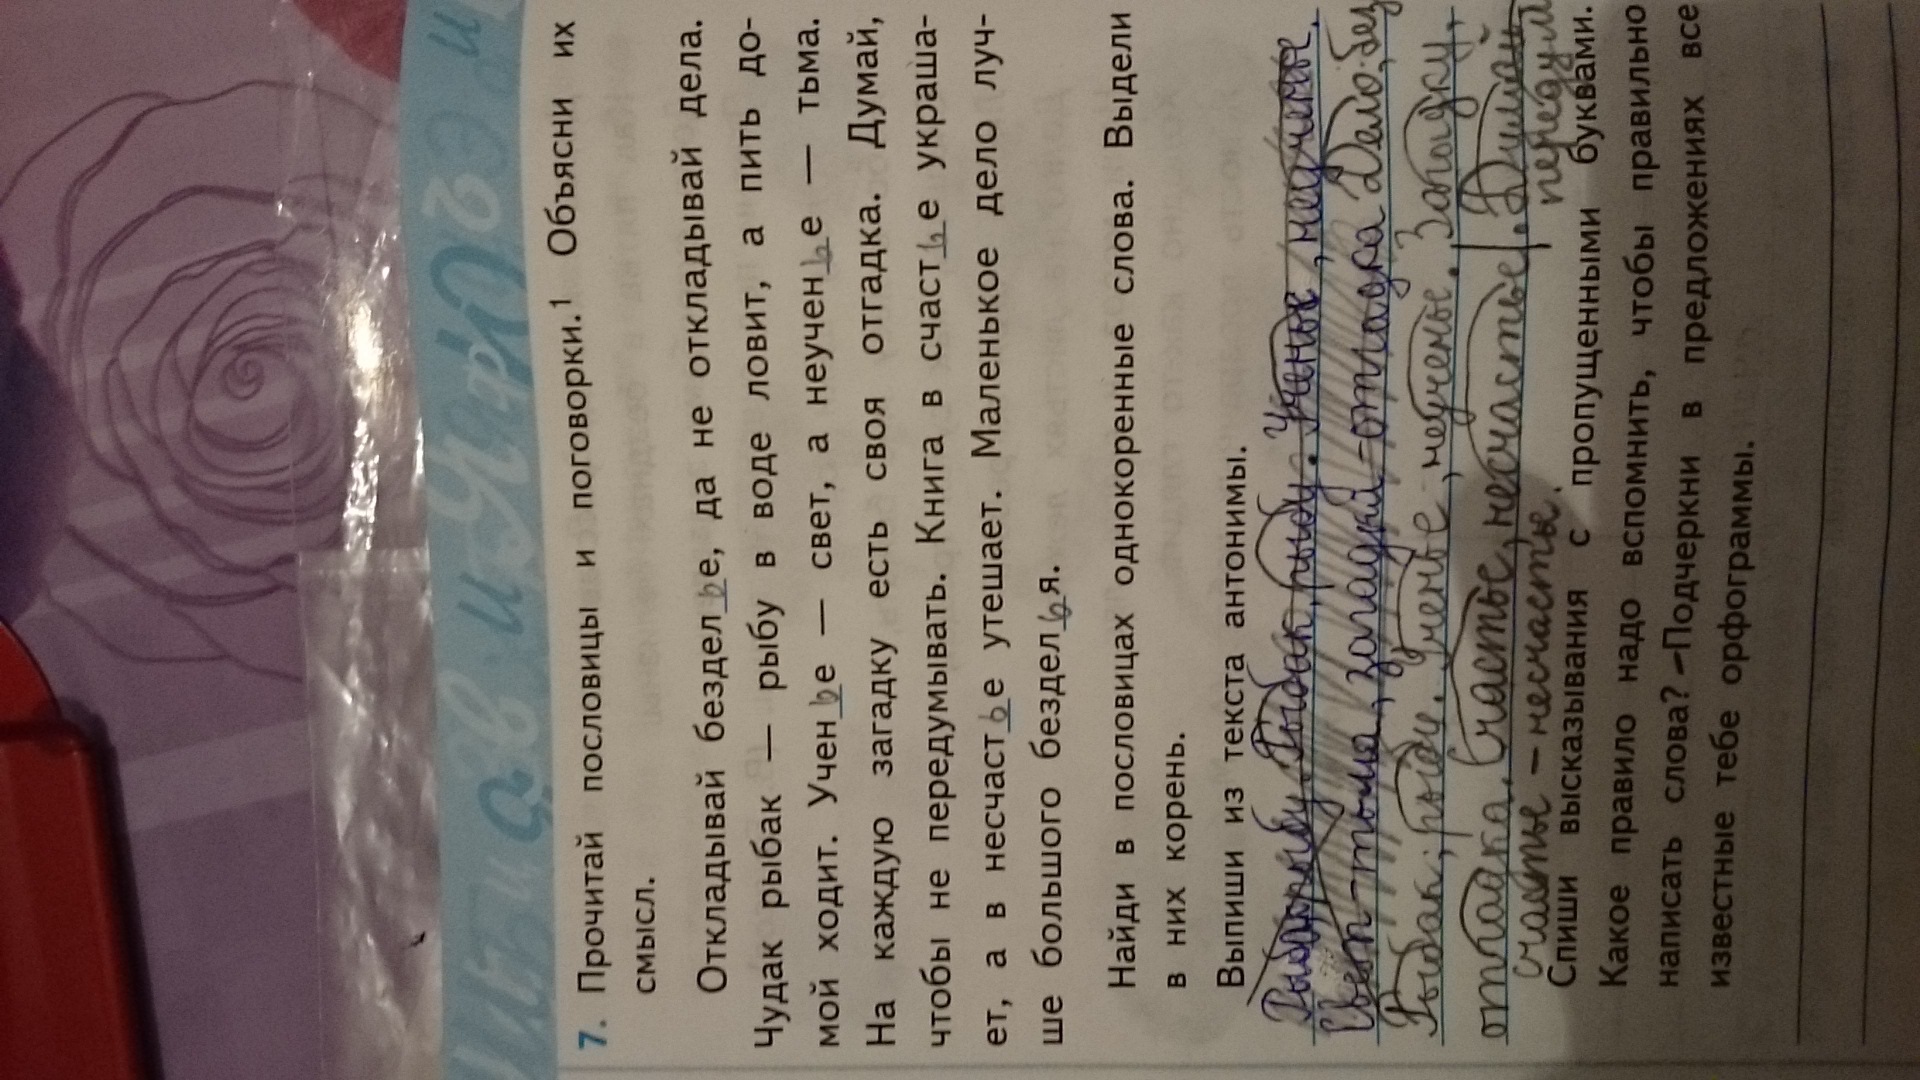 7. Прочитай пословицы и поговорки.¹ Объясни их
смысл.
Откладывай безделье, да не откладывай дела.
Чудак рыбак — рыбу в воде ловит, а пить до-
мой ходит. Ученье — свет, а неученье — тьма.
На каждую загадку есть своя отгадка. Думай,
чтобы не передумывать. Книга в счастье украша-
ет, а в несчастье утешает. Маленькое дело луч-
ше большого безделья.
Найди в пословицах однокоренные слова. Выдели
в них корень.
Выпиши из текста антонимы.
Рыбак, рыбу. Ученье, неученье.
Свет - тьма, загадки - отгадка Дело, без
Рыбак, рыбу. Ученье, неученье. Загадку,
отгадка. Счастье, несчастье. Думай
счастье - несчастье.
Спиши высказывания с пропущенными буквами.
Какое правило надо вспомнить, чтобы правильно
написать слова? Подчеркни в предложениях все
известные тебе орфограммы.